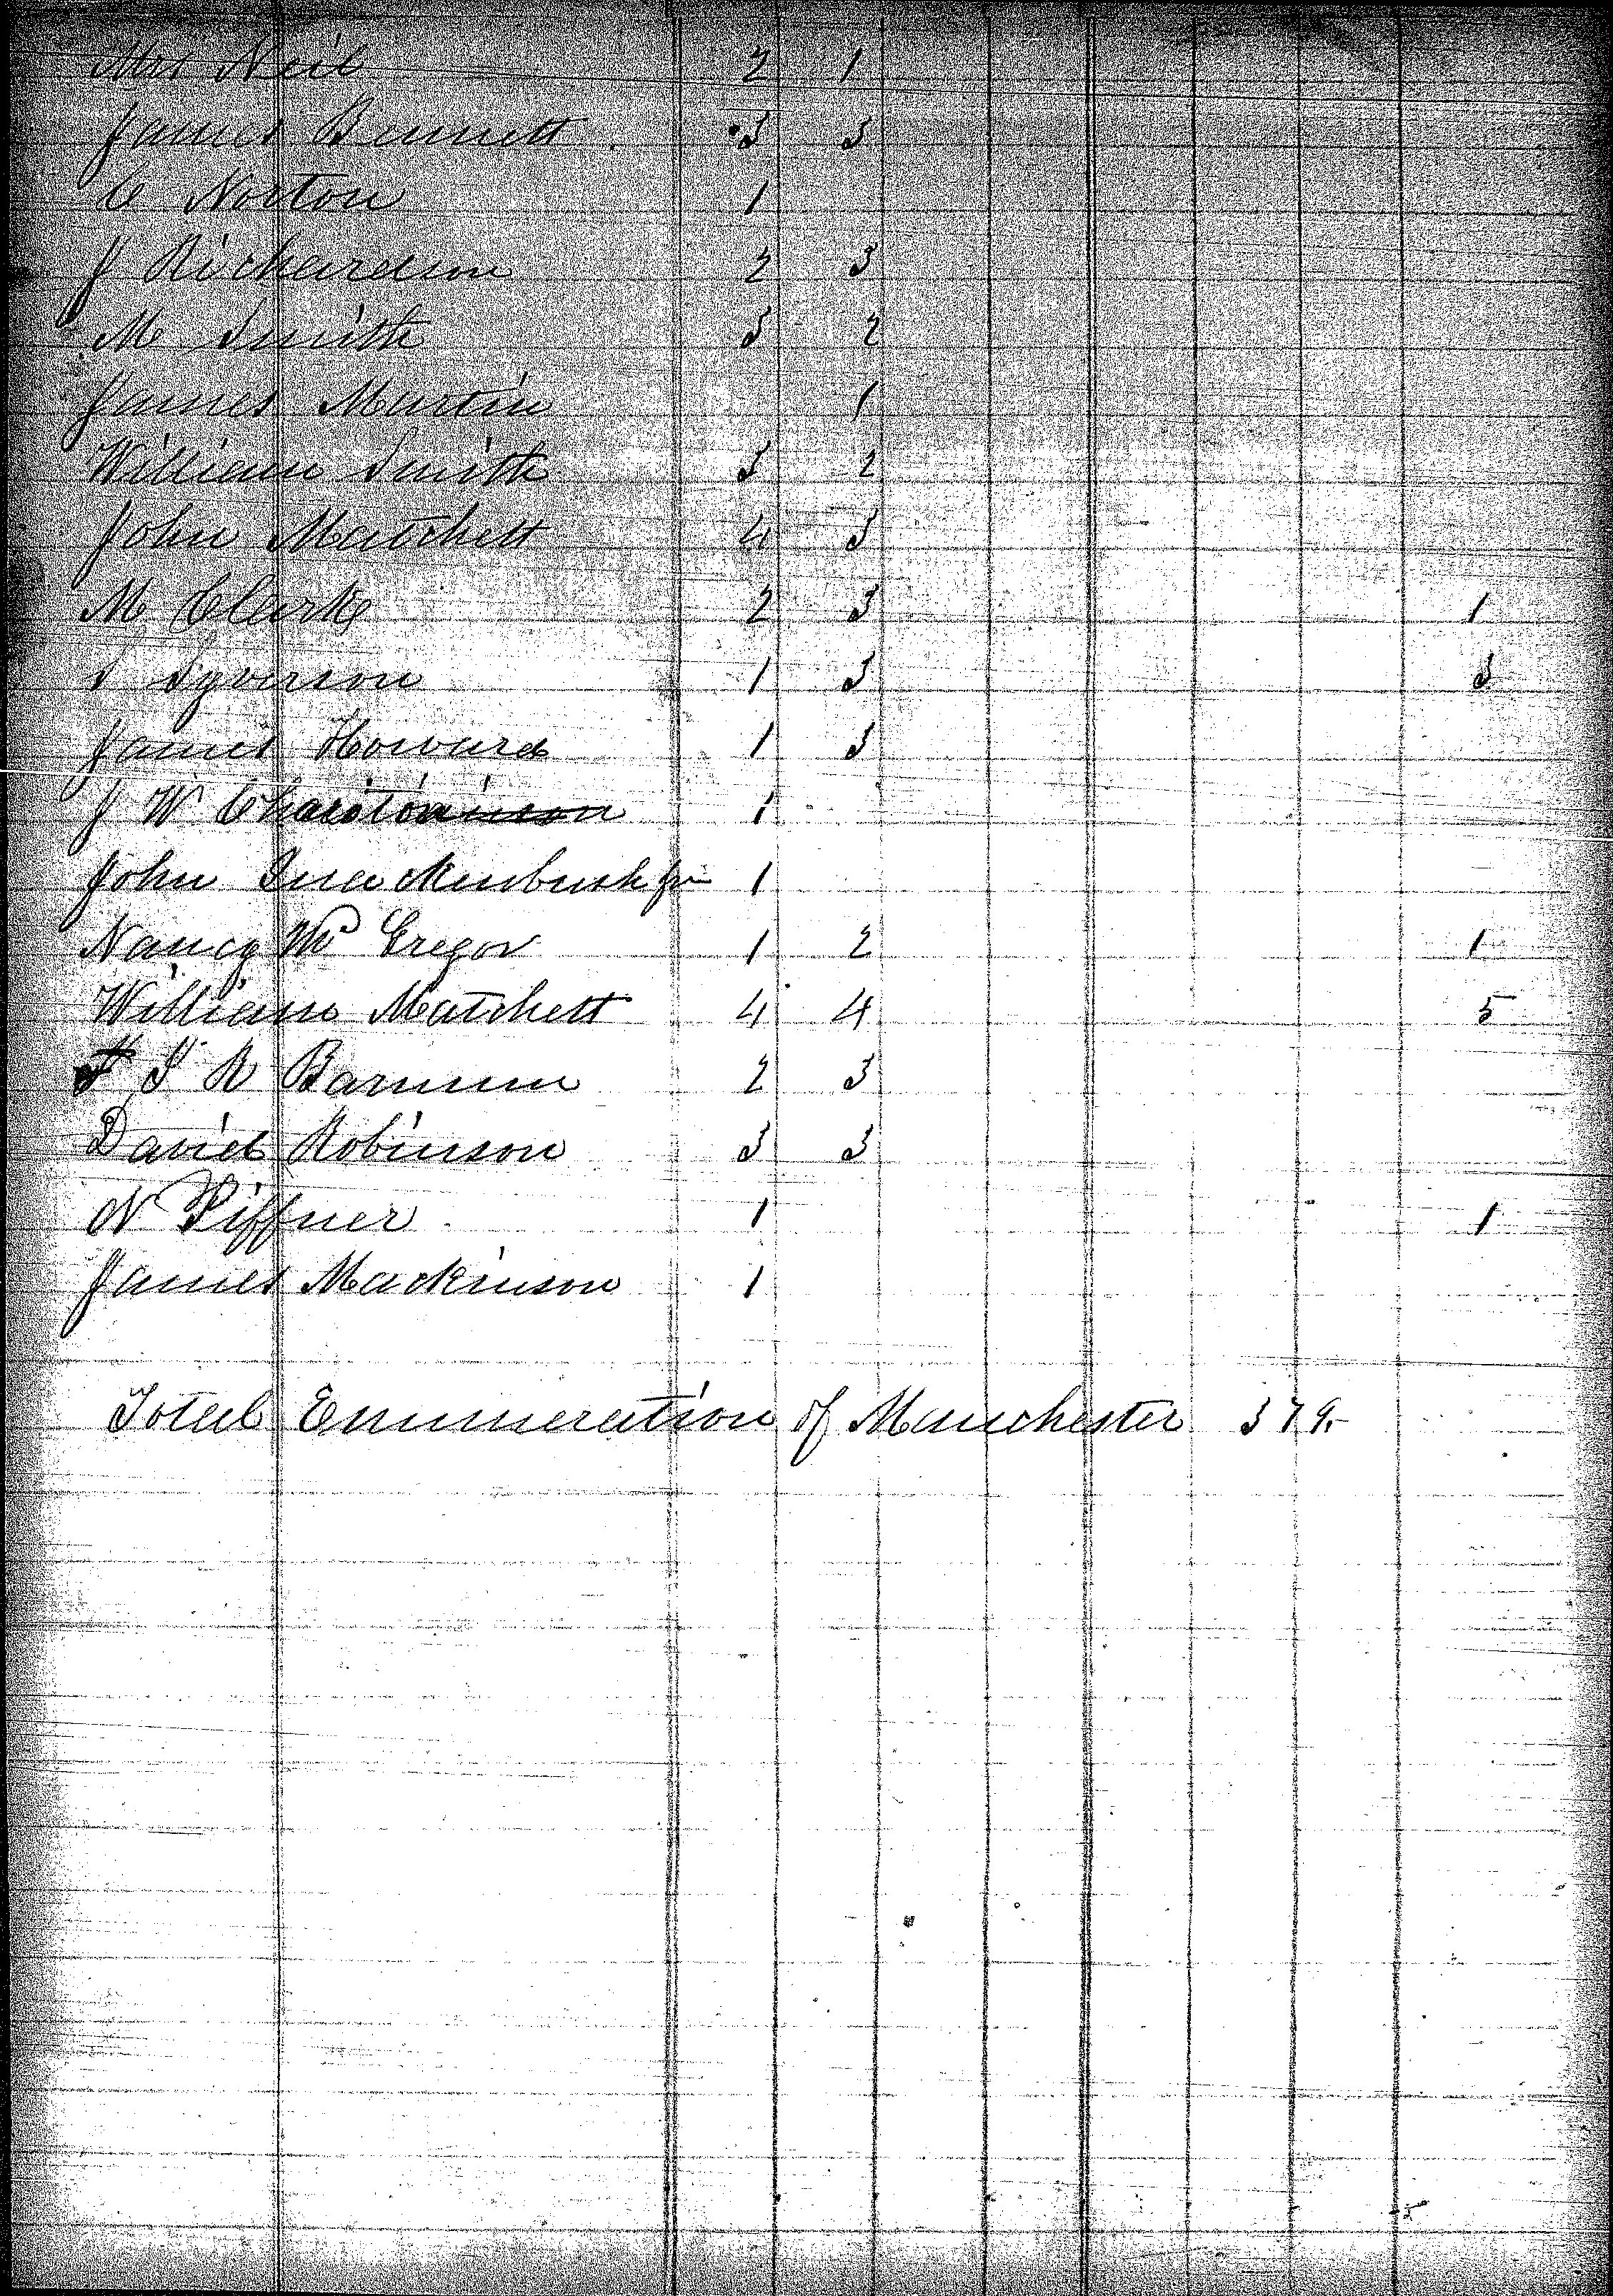 Mrs Neil 2 1
James Bennett 3 3
C Norton 1
J Richardson 2 3
M Smith 3 2
James Martin 1
William Smith 3 2
John Matchett 4 3
M Clark 2 3 1
S Syverson 1 3 3
James Howard 1 3
J W 1
John Quackenbush jr 1
Nancy Mc Gregor 1 2 1
William Matchett 4 4 5
S R Barnum 2 3
David Robinson 3 3
N Piffner 1 1
James Mackinson 1
Total Enumeration of Manchester 379